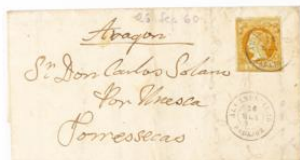 25 Feb 60
Aragon
Sr. Don Carlos Solano
Por Huesca
Torressecas